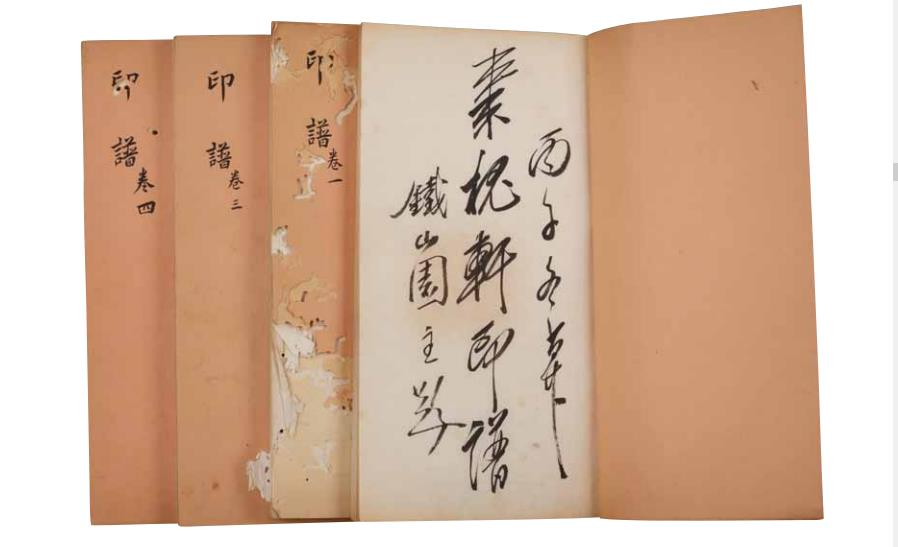 丙子冬
軒印譜
鐵山園主
印譜 卷一
印譜 卷三
印譜 卷四